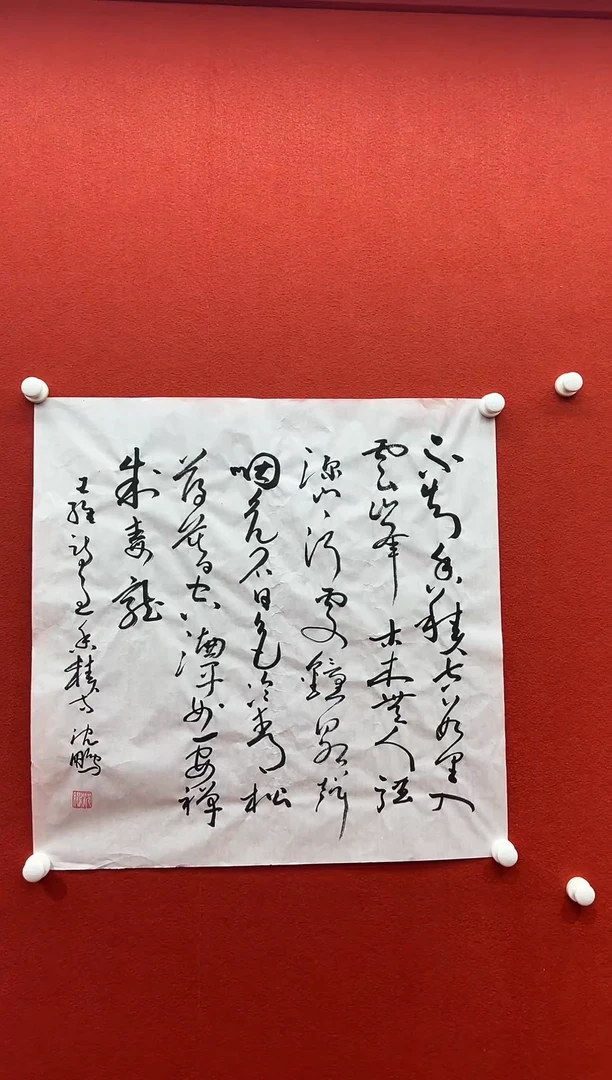 不知香積寺数里入
雲峰古木無人徑
深山何處鐘泉聲
咽危石日色冷青松
薄暮空潭曲安禪
制毒龍
王維詩過香積寺 沈鵬